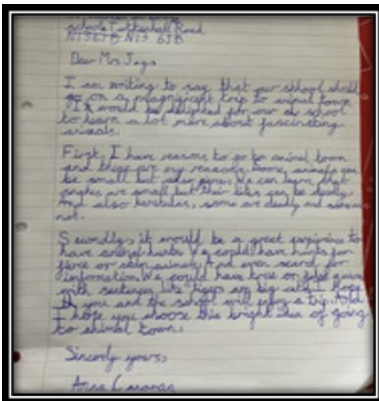 school Tottenhall Road
N13 6JB N13 6JB
Dear Mrs Jags
I am writing to say that our school should
go on a magnificent trip to animal town.
I would be delighted for our school
to learn a lot more about fascinating
animals.
First, I have reasons to go to animal town
and these are my reasons. Some animals can
be small but dangerous. We can learn that
are small but their bite can be deadly.
And also some are deadly and some are
not.
Secondly, it would be a great experience to
have animal We could have hunts for
fierce or calm animals. And even search for
information. We could have true or false
with sentences like tigers are big cats. I hope
you and the school will enjoy a trip. And
I hope you choose this bright idea of going
to animal town.
Sincerly yours,
Anna